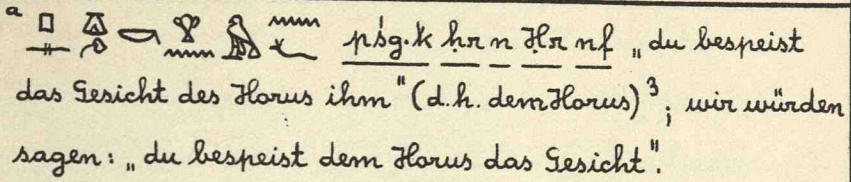 a 𓊪𓊃𓎼𓂐𓎡𓁷𓈖𓅃𓈖𓆑 pśg.k ḥr n Ḥr nf „du bespeist
das Gesicht des Horus ihm" (d.h. dem Horus)³; wir würden
sagen: „du bespeist dem Horus das Gesicht".